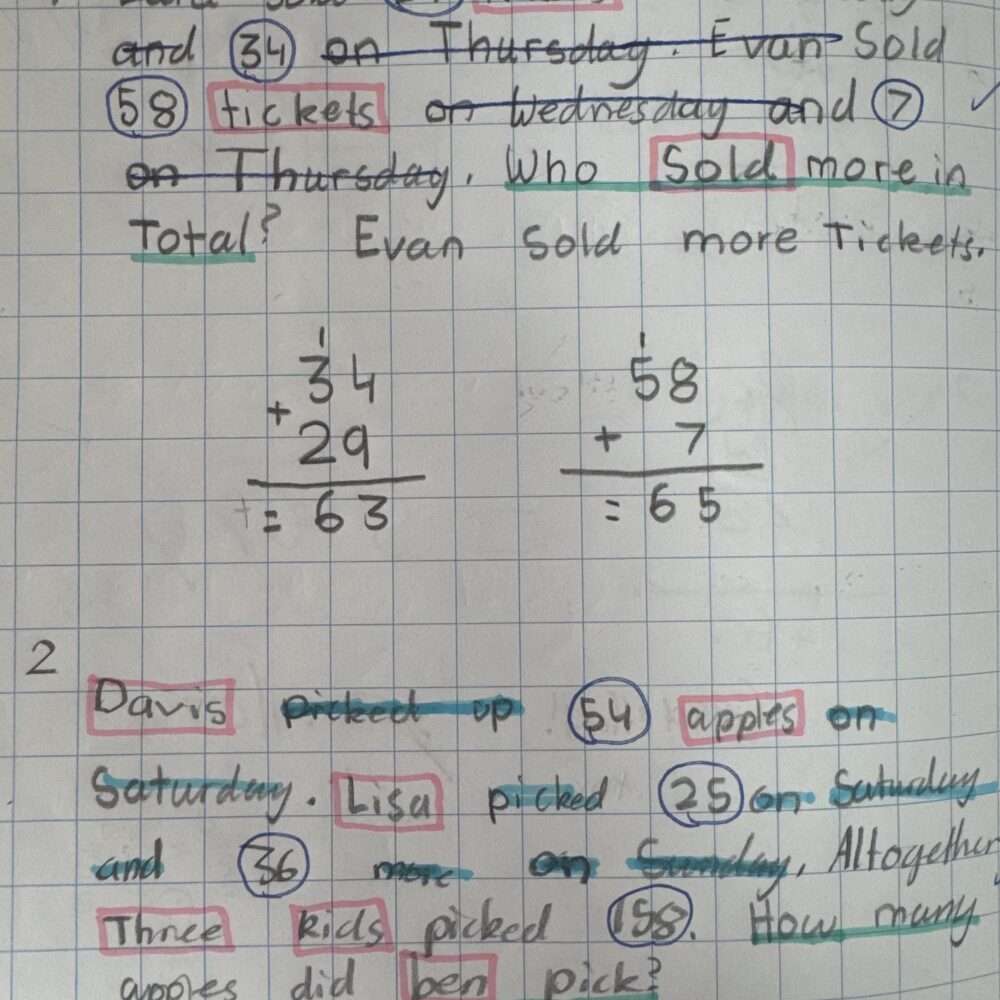 and 34 on Thursday. Evan Sold
58 tickets on Wednesday and 7
on Thursday. Who Sold more in
Total? Evan Sold more Tickets.
1 1
34 58
+ 29 + 7
= 63 = 65
2
Davis picked up 54 apples on
Saturday. Lisa picked 25 on Saturday
and 36 more on Sunday, Altogether
Three kids picked 158. How many
apples did ben pick?